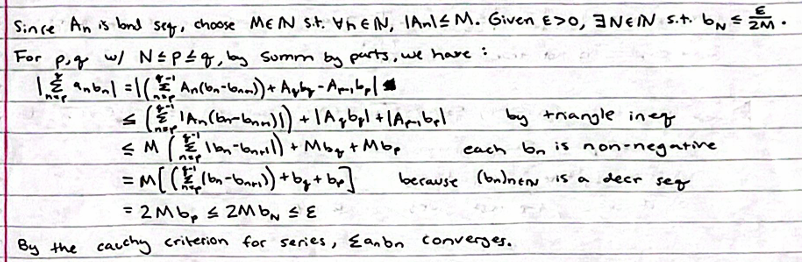 Since An is bnd seq, choose M∈ℕ s.t. ∀n∈ℕ, |An|≤M. Given ε>0, ∃N∈ℕ s.t. b_N ≤ ε/2M.
For p,q w/ N≤p≤q, by summ by parts, we have:
|Σ_{n=p}^{q} anbn| = |(Σ_{n=p}^{q-1} An(bn-bn+1)) + Aqbq - Ap-1bp|
≤ (Σ_{n=p}^{q-1} |An(bn-bn+1)|) + |Aqbq| + |Ap-1bp| by triangle ineq
≤ M (Σ_{n=p}^{q-1} |bn-bn+1|) + Mbq + Mbp each bn is non-negative
= M[(Σ_{n=p}^{q-1} (bn-bn+1)) + bq + bp] because (bn)n∈ℕ is a decr seq
= 2Mbp ≤ 2Mb_N ≤ ε
By the cauchy criterion for series, Σanbn converges.